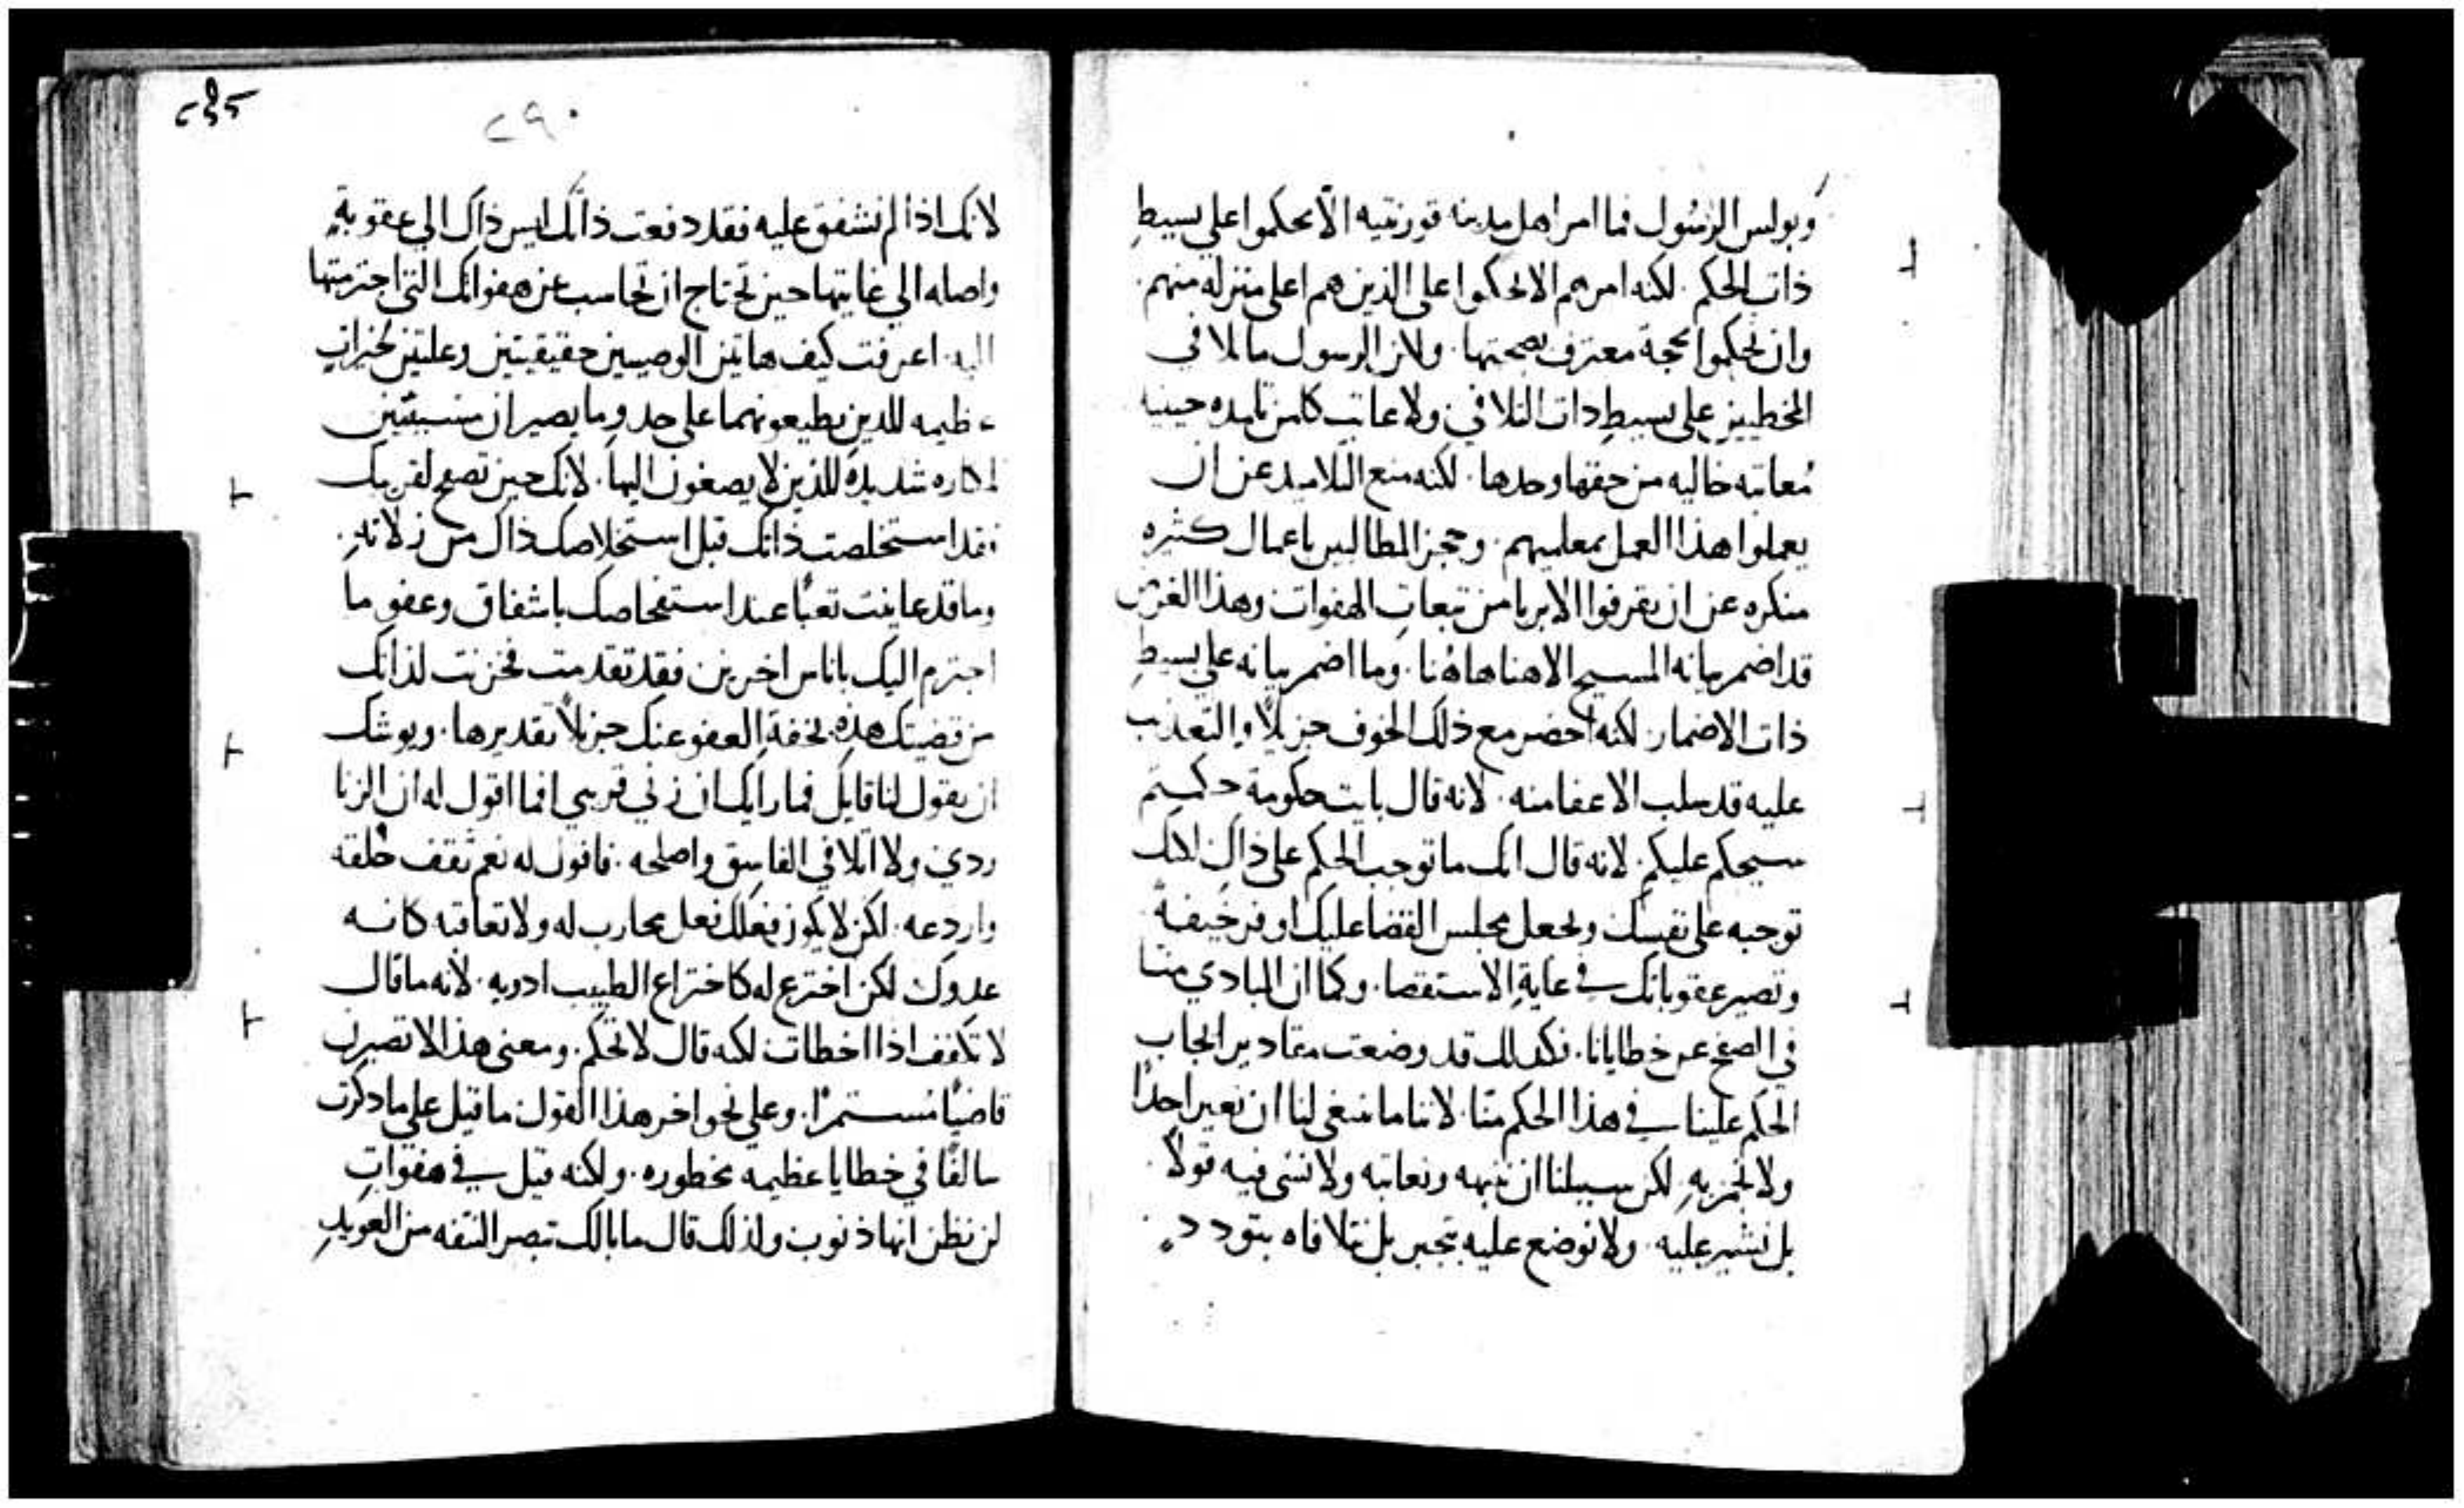 وبولس الرسُول فما امر اهل مدينه قورنتيه الّا يحكموا علي بسيطِ
ذات الحكم . لكنه امرهم الا يحكموا علي الذين هم اعلي منزله منهم .
وان يحكموا بحجة معترف بصحتها . ولان الرسول ما تلافي
المخطيين علي بسيطِ ذات التلافي ولا عاتب كلمن تلمده حينيد
مُعاتبه خاليه من حقها وحدها . لكنه منع التلاميد عن ان
يعملوا هذا العمل بمعلميهم . وحجز المطالبين باعمال كثيره
منكره عن ان يقرفوا الابريا من تبعاتِ الهفوات وهذا الغرض
قد اضمر بيانه المسيح الاهنا هاهُنا . وما اضمر بيانه علي بسيطِ
ذات الاضمار . لكنه احضر مع ذلك الخوف جزيلًا والتعذيب
عليه قد سلب الاعفا منه . لانه قال بايت حكومة حكمتم
سيحكم عليكم . لانه قال انك ما توجب الحكم علي ذاك لانك
توجبه علي نفسك وتجعل مجلس القضا عليك اوفر خيفةً
وتصير عقوباتك في غايةِ الاستقصا . وكما ان المبادي منّا
في الصفح عن خطايانا . فكدلك قد وضعت مقادير ايجاب
الحكم علينا في هذا الحكم منّا . لاننا ما ينبغي لنا ان نعير احدًا
ولا نخزيهِ لكن سبيلنا ان ننبهه ونعاتبه ولا نسي فيه قولًا .
بل نشير عليه . ولا نوضع عليه بتجبر بل نتلافاه بتودد .
٢٩٠
لانك اذا لم تشفق عليه فقد دفعت ذاتك ليس ذاك الي عقوبةٍ
واصله الي غايتها حين تحتاج ان تحاسب عن هفواتك التي اجترمتها
اليه . اعرفت كيف هاتين الوصيتين حقيقيتين وعلتين لخيراتٍ
عظيمه للدين يطيعونهما علي حد وما يصيران مسببتين
لمكاره شديدة للذين لا يصغون اليها . لانك حين تصفح لقريبك
فقد استخلصت ذاتك قبل استخلاصك ذاك من زلاتهِ .
وما قد عاينت تعبًا عند استفحاصك باشفاق وعفو ما
اجترم اليك باناس اخرين فقد تقدمت فخزنت لذاتك
من قضيتك هذهِ بخفةِ العفو عنك جزيلًا تقديرها . ويوشك
ان يقول لنا قايل فما رايك ان زني قريبي افما اقول له ان الزنا
ردي ولا اتلافي الفاسق واصلحه . فاقول له نعم ثقف خلقه
واردعه . لكن لا يكون فعلك فعل محارب له ولا تعاقبه كانه
عدوك لكن اخترع له كاختراع الطبيب ادويه . لانه ما قال
لا تكفف اذا اخطات لكنه قال لا تحكم . ومعني هذا لا تصيرن
قاضيًا مستمرًا . وعلي نحو اخر هذا القول ما قيل علي ما دكرت
سالفًا في خطايا عظيمه محظوره . ولكنه قيل في هفواتٍ
لن تظن انها ذنوب ولذلك قال ما بالك تبصر النتفه من العويدِ